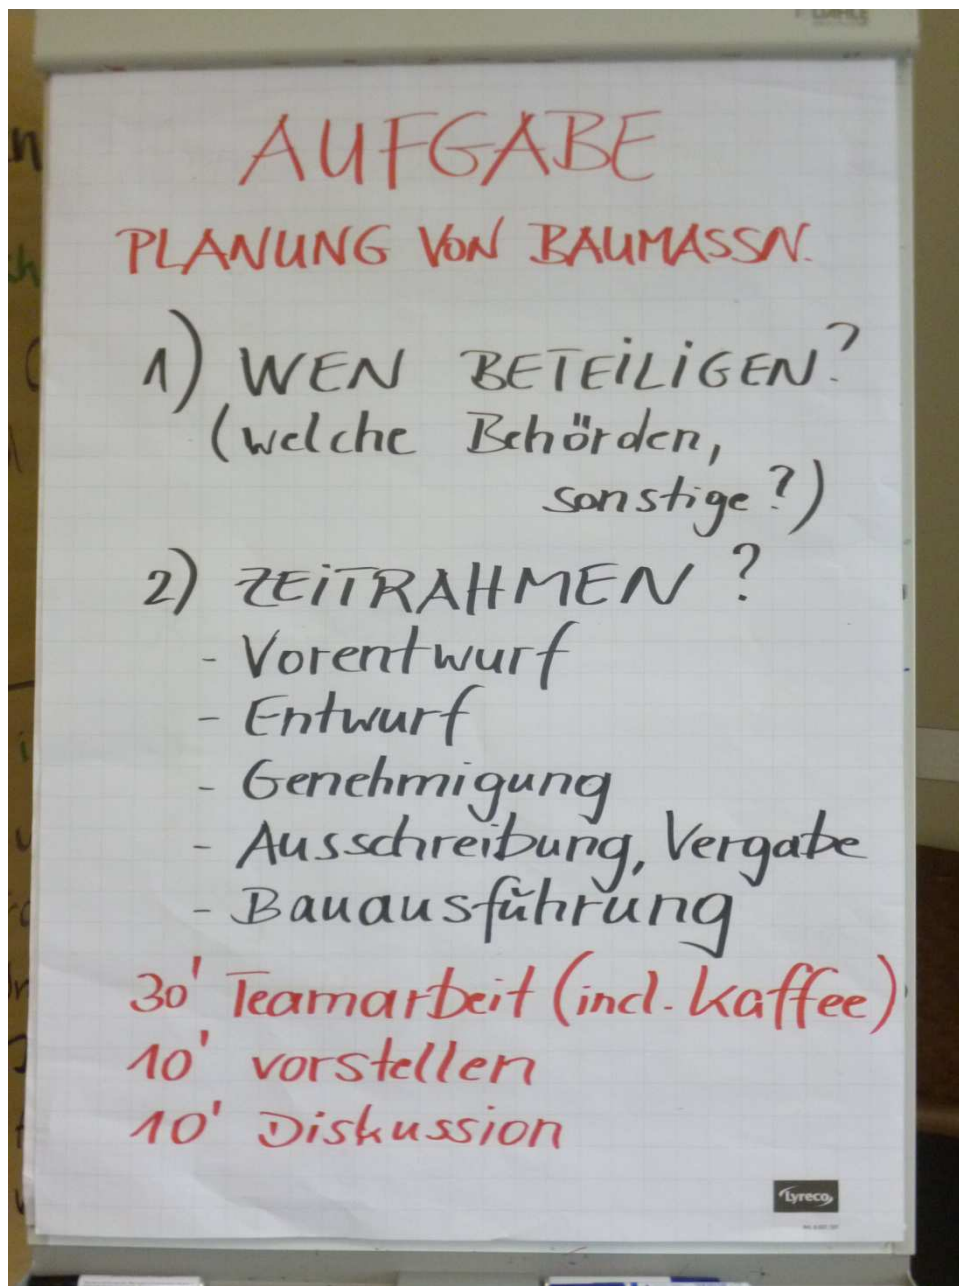 AUFGABE
PLANUNG VON BAUMASSN.
1) WEN BETEILIGEN?
(welche Behörden,
sonstige?)
2) ZEITRAHMEN?
- Vorentwurf
- Entwurf
- Genehmigung
- Ausschreibung, Vergabe
- Bauausführung
30' Teamarbeit (incl. Kaffee)
10' vorstellen
10' Diskussion
Lyreco